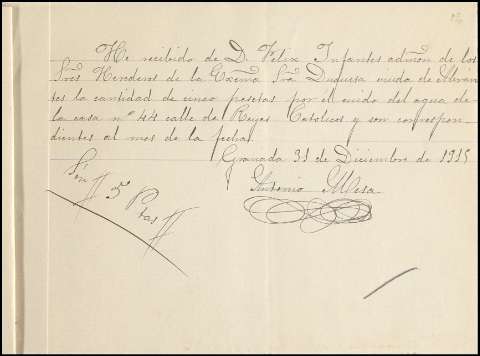 He recibido de D. Felix Infantes admõn de los
Sres Herederos de la Exema Sra Duquesa viuda de Abran
tes la cantidad de cinco pesetas por el cuido del agua de
la casa nº 44 calle de Reyes Catolicos y son correspon-
dientes al mes de la fecha.
Granada 31 de Diciembre de 1915
Antonio Mesa
Son // 5 Ptas //